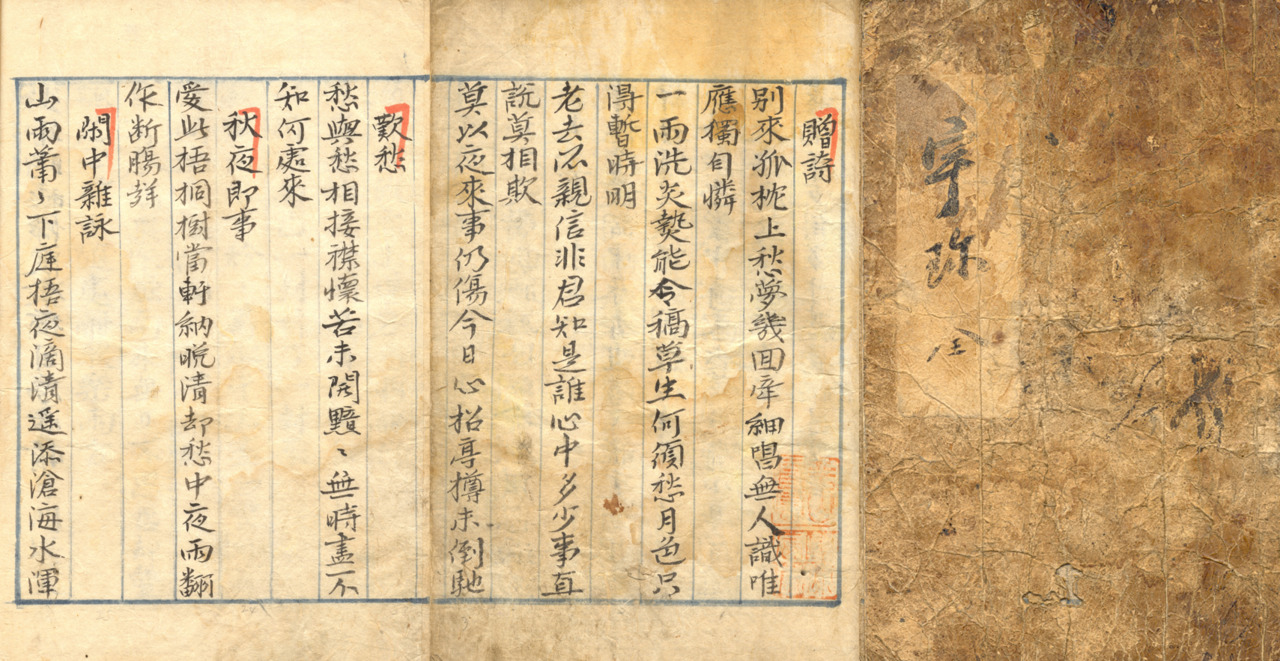 全
贈詩
別來孤枕上愁夢幾回牽細唱無人識唯
應獨自憐
一雨洗炎熱能令稿草生何須愁月色只
得暫時明
老去所親信非君知是誰心中多少事直
說莫相欺
莫以夜來事仍傷今日心招亭樽未倒馳
歎愁
愁與愁相接襟懷苦未開黯〻無時盡不
知何處來
秋夜即事
愛此梧桐樹當軒納晚清却愁中夜雨翻
作断腸聲
閑中雜詠
山雨蕭〻下庭梧夜滴漬遥添滄海水渾